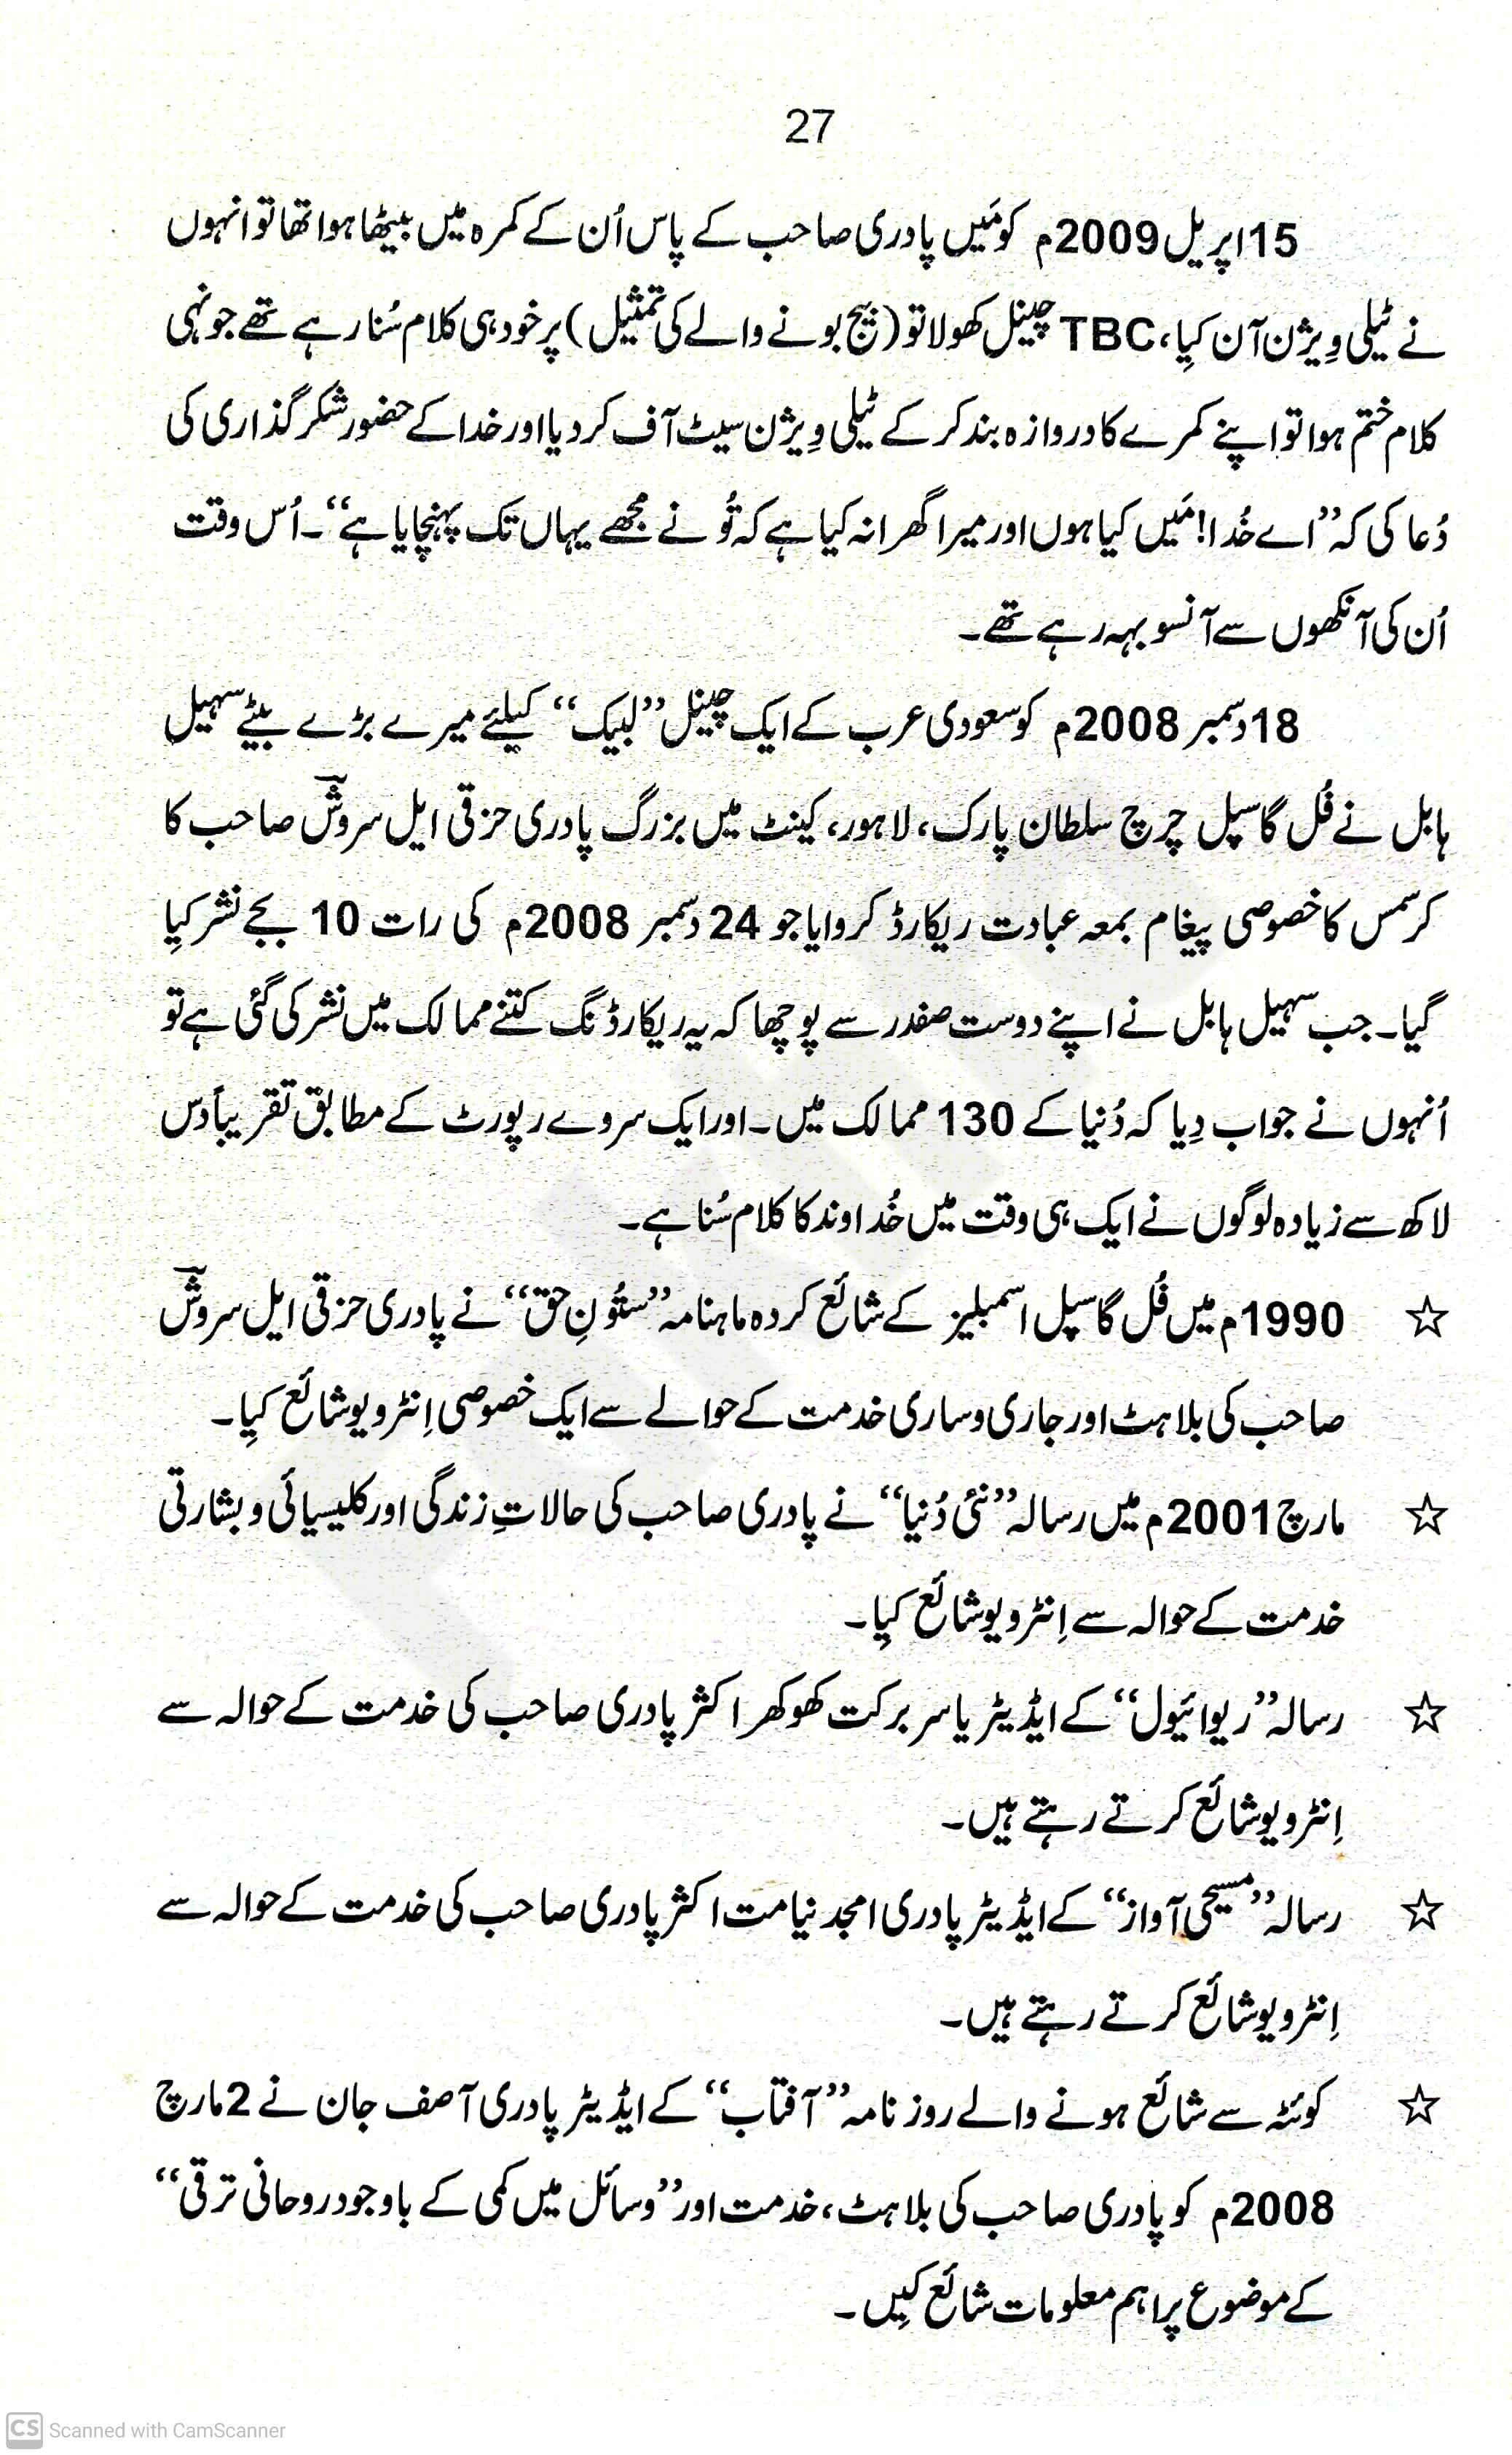 27
15اپریل2009م کومَیں پادری صاحب کے پاس اُن کے کمرہ میں بیٹھا ہوا تھا تو انہوں
نے ٹیلی وِیژن آن کِیا، TBC چینل کھولا تو (بیج بونے والے کی تمثیل) پر خود ہی کلام سُنا رہے تھے جونہی
کلام ختم ہوا تو اپنے کمرے کا دروازہ بند کر کے ٹیلی وِیژن سیٹ آف کر دیا اور خدا کے حضور شکر گذاری کی
دُعا کی کہ ”اے خُدا! مَیں کیا ہوں اور میرا گھرانہ کیا ہے کہ تُو نے مجھے یہاں تک پہنچایا ہے“۔ اُس وقت
اُن کی آنکھوں سے آنسو بہہ رہے تھے۔
18دسمبر 2008م کو سعودی عرب کے ایک چینل ”لبیک“ کیلئے میرے بڑے بیٹے سہیل
ہابل نے فُل گاسپل چرچ سلطان پارک، لاہور، کینٹ میں بزرگ پادری حزقی ایل سروشؔ صاحب کا
کرسمس کا خصوصی پیغام بمعہ عبادت ریکارڈ کروایا جو 24 دسمبر 2008م کی رات 10 بجے نشر کِیا
گیا۔ جب سہیل ہابل نے اپنے دوست صفدر سے پوچھا کہ یہ ریکارڈنگ کتنے ممالک میں نشر کی گئی ہے تو
اُنہوں نے جواب دِیا کہ دُنیا کے 130 ممالک میں۔ اور ایک سروے رپورٹ کے مطابق تقریباً دس
لاکھ سے زیادہ لوگوں نے ایک ہی وقت میں خُداوند کا کلام سُنا ہے۔
☆ 1990م میں فُل گاسپل اسمبلیز کے شائع کردہ ماہنامہ ”ستُونِ حق“ نے پادری حزقی ایل سروشؔ
صاحب کی بلاہٹ اور جاری و ساری خدمت کے حوالے سے ایک خصوصی اِنٹرویو شائع کِیا۔
☆ مارچ 2001م میں رسالہ ”نئی دُنیا“ نے پادری صاحب کی حالاتِ زندگی اور کلیسیائی و بشارتی
خدمت کے حوالہ سے اِنٹرویو شائع کِیا۔
☆ رسالہ ”ریوائیول“ کے ایڈیٹر یاسر برکت کھوکھر اکثر پادری صاحب کی خدمت کے حوالہ سے
اِنٹرویو شائع کرتے رہتے ہیں۔
☆ رسالہ ”مسیحی آواز“ کے ایڈیٹر پادری امجد نیامت اکثر پادری صاحب کی خدمت کے حوالہ سے
اِنٹرویو شائع کرتے رہتے ہیں۔
☆ کوئٹہ سے شائع ہونے والے روزنامہ ”آفتاب“ کے ایڈیٹر پادری آصف جان نے 2مارچ
2008م کو پادری صاحب کی بلاہٹ، خدمت اور ”وسائل میں کمی کے باوجود روحانی ترقی“
کے موضوع پر اہم معلومات شائع کِیں۔
CS Scanned with CamScanner